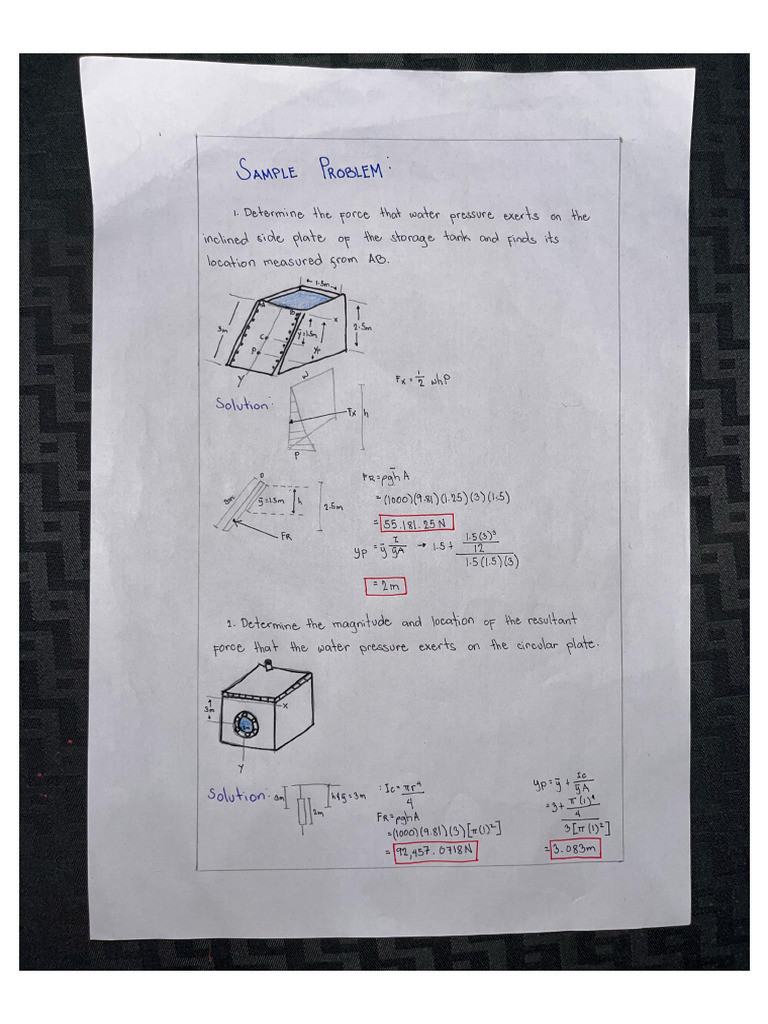 SAMPLE PROBLEM:
1. Determine the force that water pressure exerts on the
inclined side plate of the storage tank and finds its
location measured from AB.
1.5m
A
B
x
3m
2.5m
C
ȳ=1.5m
P
yp
Y
W
Fx = 1/2 whP
Solution:
Fx
h
P
FR = ρgh̄A
0
3m
ȳ=1.5m
h
2.5m
= (1000)(9.81)(1.25)(3)(1.5)
= 55.181.25N
FR
yp = ȳ I/ȳA → 1.5 + 1.5(3)³/12 / 1.5(1.5)(3)
= 2m
2. Determine the magnitude and location of the resultant
force that the water pressure exerts on the circular plate.
3m
X
Y
Solution:
3m
h=ȳ=3m
2m
: Ic = πr⁴/4
FR = ρghA
= (1000)(9.81)(3)[π(1)²]
= 92,457.0718N
yp = ȳ + Ic/ȳA
= 3 + π(1)⁴/4 / 3[π(1)²]
= 3.083m